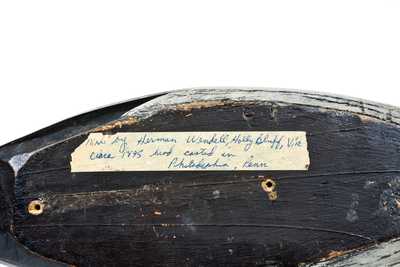 by Herman Wendell, Holly Bluff, Vic
Circa 1895 bird casted in
Philadelphia, Penn